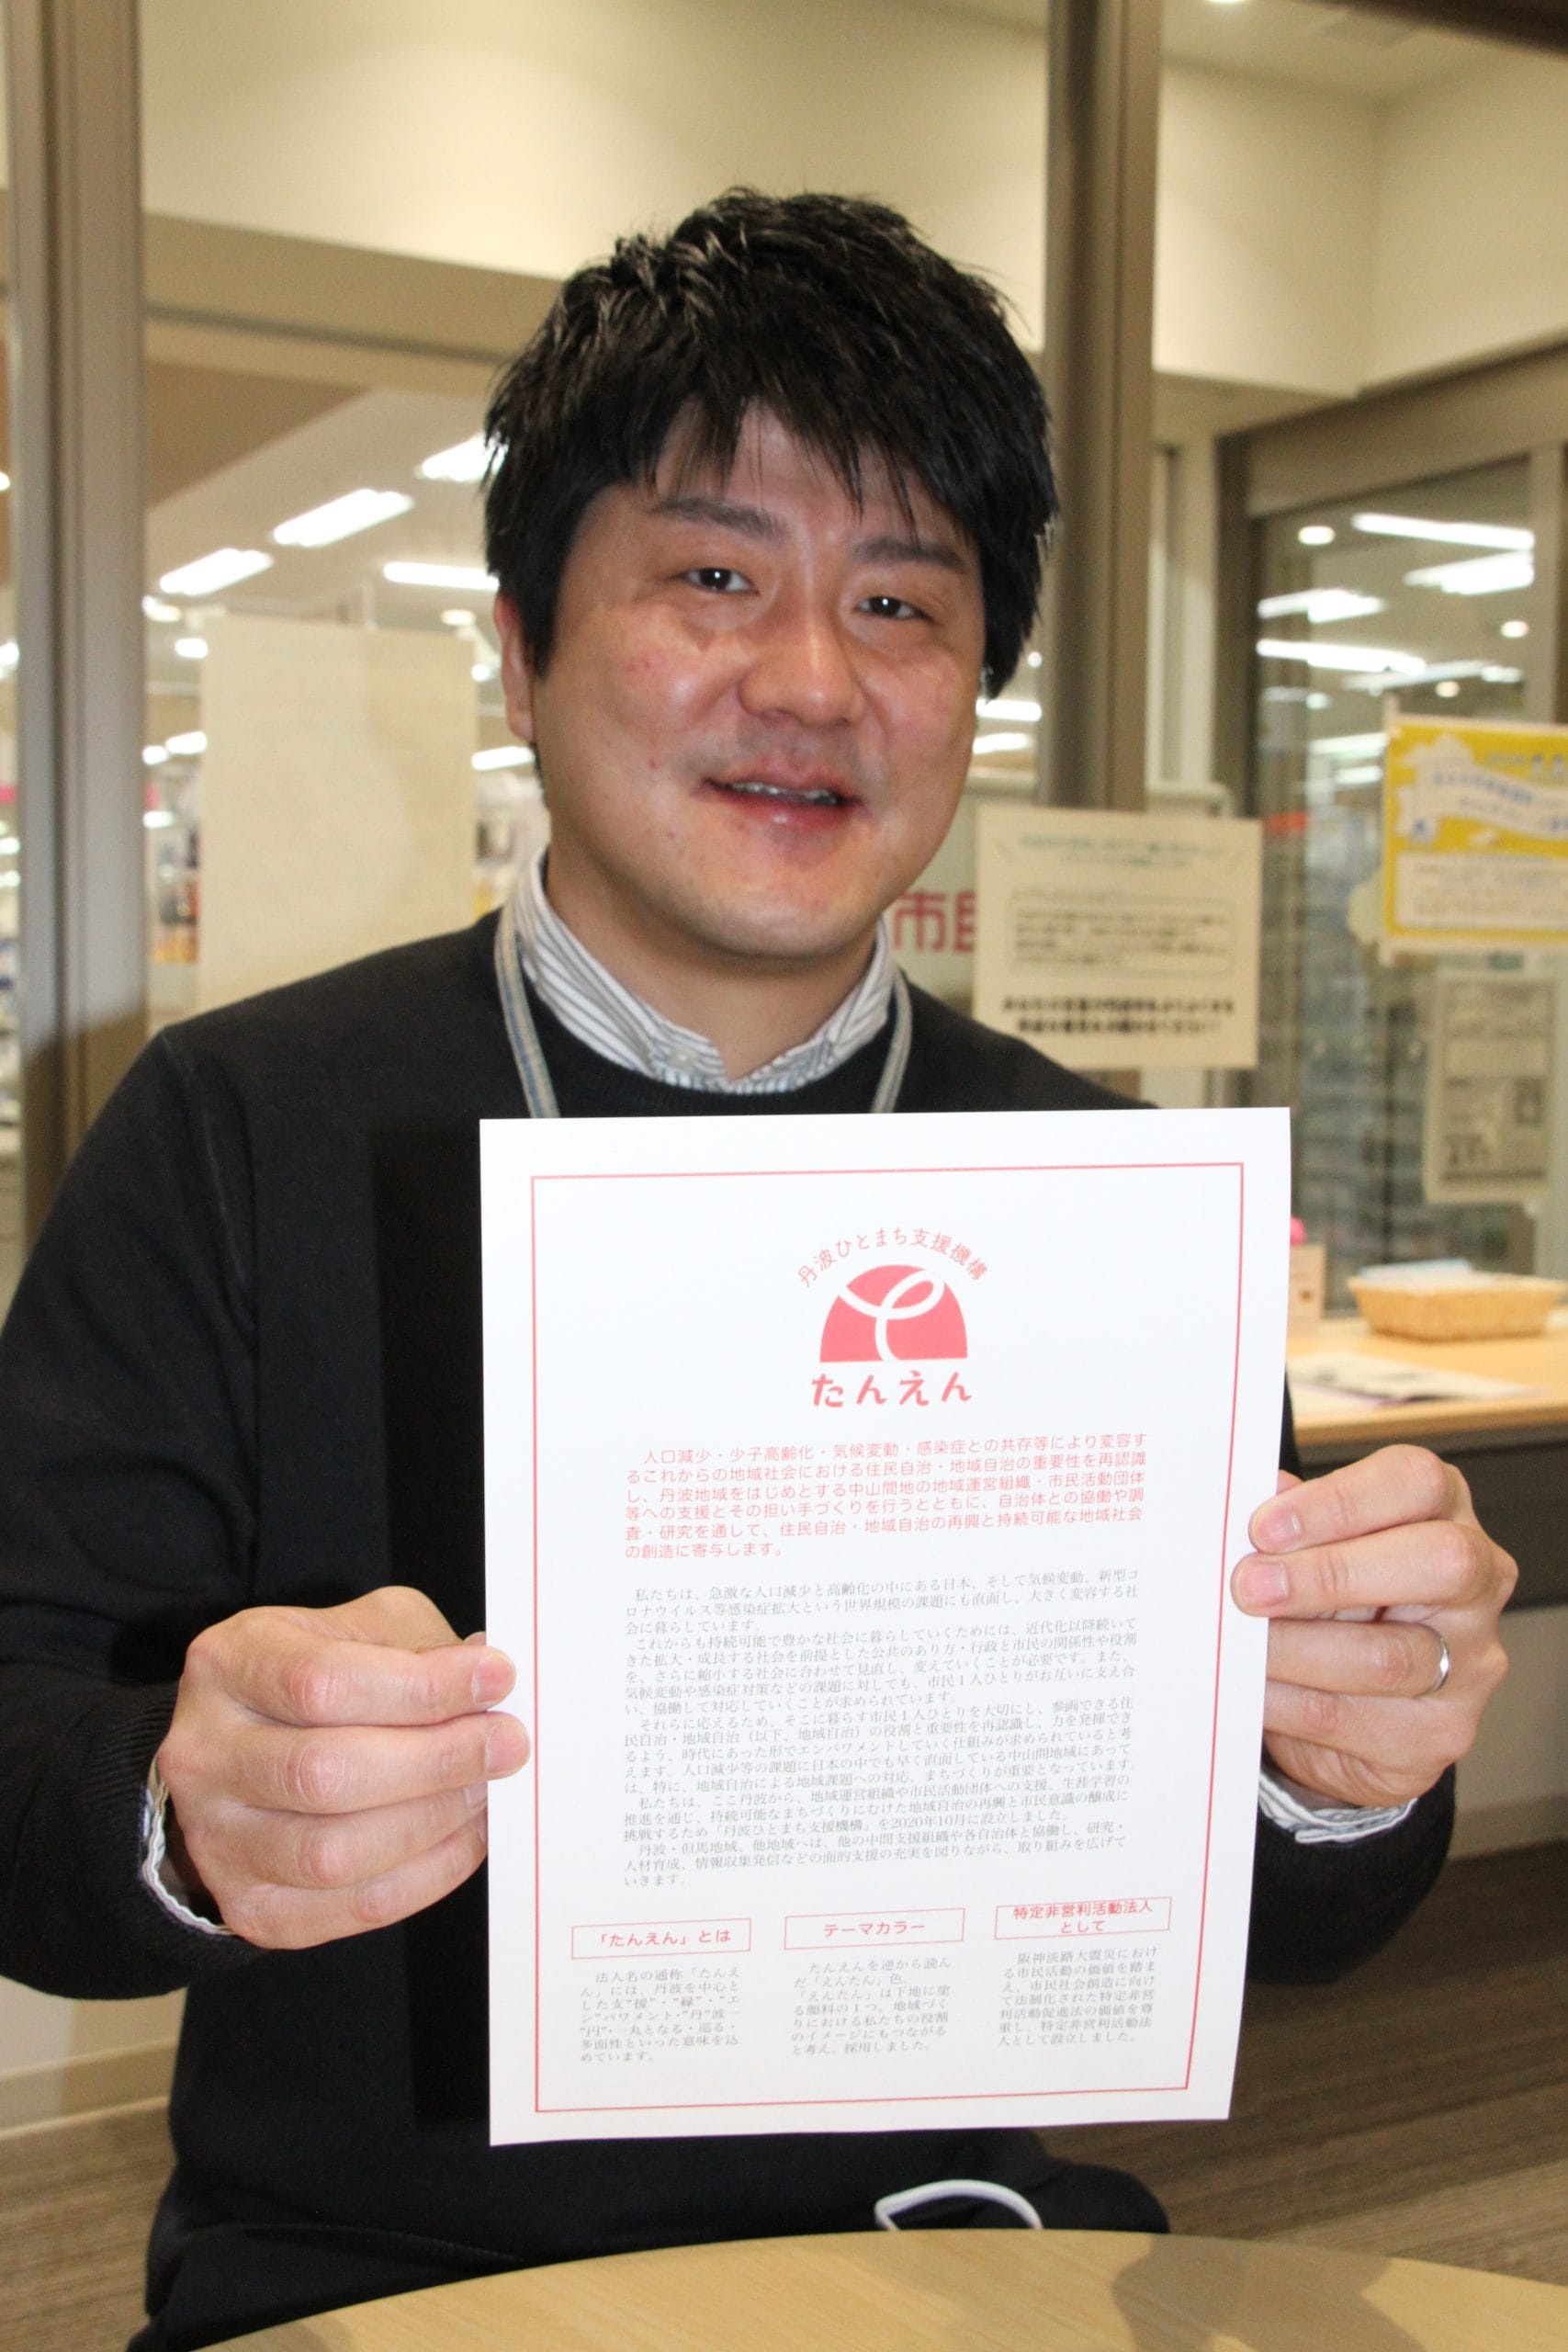 丹波ひとまち支援機構
たんえん
人口減少・少子高齢化・気候変動・感染症との共存等により変容す
るこれからの地域社会における住民自治・地域自治の重要性を再認識
し、丹波地域をはじめとする中山間地の地域運営組織・市民活動団体
等への支援とその担い手づくりを行うとともに、自治体との協働や調
査・研究を通して、住民自治・地域自治の再興と持続可能な地域社会
の創造に寄与します。
私たちは、急激な人口減少と高齢化の中にある日本、そして気候変動、新型コ
ロナウイルス等感染症拡大という世界規模の課題にも直面し、大きく変容する社
会に暮らしています。
これからも持続可能で豊かな社会に暮らしていくためには、近代化以降続いて
きた拡大・成長する社会を前提とした公共のあり方・行政と市民の関係性や役割
を、さらに縮小する社会に合わせて見直し、変えていくことが必要です。また、
気候変動や感染症対策などの課題に対しても、市民１人ひとりがお互いに支え合
い、協働して対応していくことが求められています。
それらに応えるため、そこに暮らす市民１人ひとりを大切にし、参画できる住
民自治・地域自治（以下、地域自治）の役割と重要性を再認識し、力を発揮でき
るよう、時代にあった形でエンパワメントしていく仕組みが求められていると考
えます。人口減少等の課題に日本の中でも早く直面している中山間地域にあって
は、特に、地域自治による地域課題への対応、まちづくりが重要となっています。
私たちは、ここ丹波から、地域運営組織や市民活動団体への支援、生涯学習の
推進を通じ、持続可能なまちづくりにむけた地域自治の再興と市民意識の醸成に
挑戦するため「丹波ひとまち支援機構」を2020年10月に設立しました。
丹波・但馬地域、他地域へは、他の中間支援組織や各自治体と協働し、研究・
人材育成、情報収集発信などの面的支援の充実を図りながら、取り組みを広げて
いきます。
「たんえん」とは
法人名の通称「たんえ
ん」には、丹波を中心と
した支“援”・“縁”・“エ
ン”パワメント・“丹”波一
“円”・一丸となる・巡る・
多面性といった意味を込
めています。
テーマカラー
たんえんを逆から読ん
だ「えんたん」色。
「えんたん」は下地に塗
る顔料の１つ。地域づく
りにおける私たちの役割
のイメージにもつながる
と考え、採用しました。
特定非営利活動法人
として
阪神淡路大震災におけ
る市民活動の価値を踏ま
え、市民社会創造に向け
て法制化された特定非営
利活動促進法の価値を尊
重し、特定非営利活動法
人として設立しました。
市民